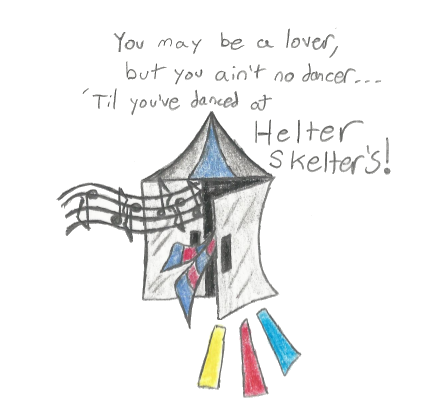 You may be a lover,
but you ain't no dancer...
'Til you've danced at
Helter
Skelter's!